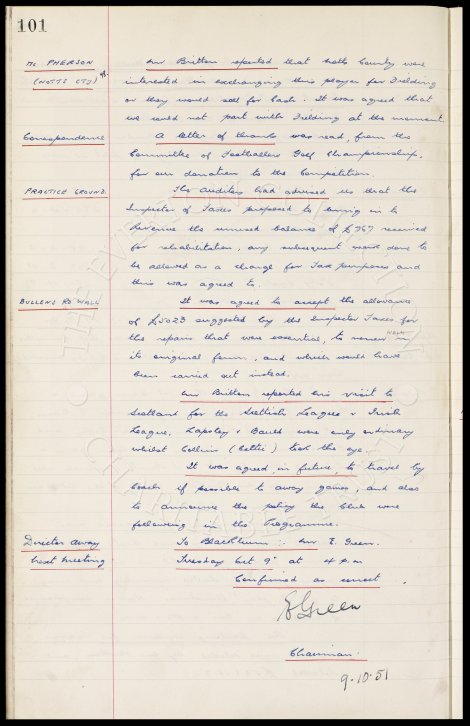 101
Mc PHERSON
(NOTTS CTY)
Mr Britton reported that Notts County were
interested in exchanging this player for Fielding
or they would sell for cash. It was agreed that
we could not part with Fielding at the moment
Correspondence
A letter of thanks was read, from the
Committee of Footballers Golf Championship.
for our donation to the Competition.
PRACTICE GROUND.
The Auditors had advised us that the
Inspector of Taxes proposed to bring in to
Revenue the unused balance of £767 received
for rehabilitation, any subsequent work done to
be allowed as a charge for Tax purposes and
this was agreed to.
BULLENS RD WALL
It was agreed to accept the allowance
of £5023 suggested by the Inspector Taxes for
the repairs that were essential, to renew in
its original form, and which would have
been carried out instead.
Mr Britton reported his visit to
Scotland for the Scottish League v Irish
League, Lapsley & Bauld were only ordinary
whilst Collins (Celtic) took the eye.
It was agreed in future, to travel by
Coach if possible to away games, and also
to announce the policy the Club were
following in the Programme.
Director away
To Blackburn :- Mr E. Green.
Next meeting
Tuesday Oct 9th at 4 p.m
Confirmed as correct.
E Green
Chairman.
9.10.51
THE EVERTON COLLECTION
CHARITABLE TRUST